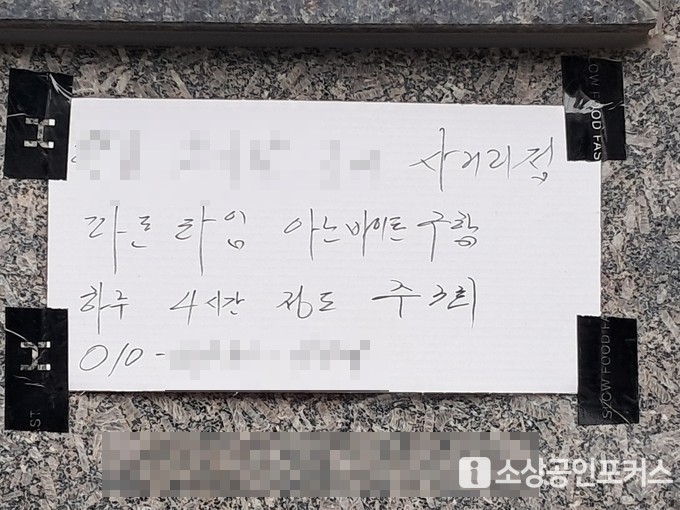 사거리점
파트 타임 아르바이트 구함
하루 4시간 정도 주 3회
010-
LOW FOOD FAS
SLOW FOOD FA
ST
i 소상공인포커스